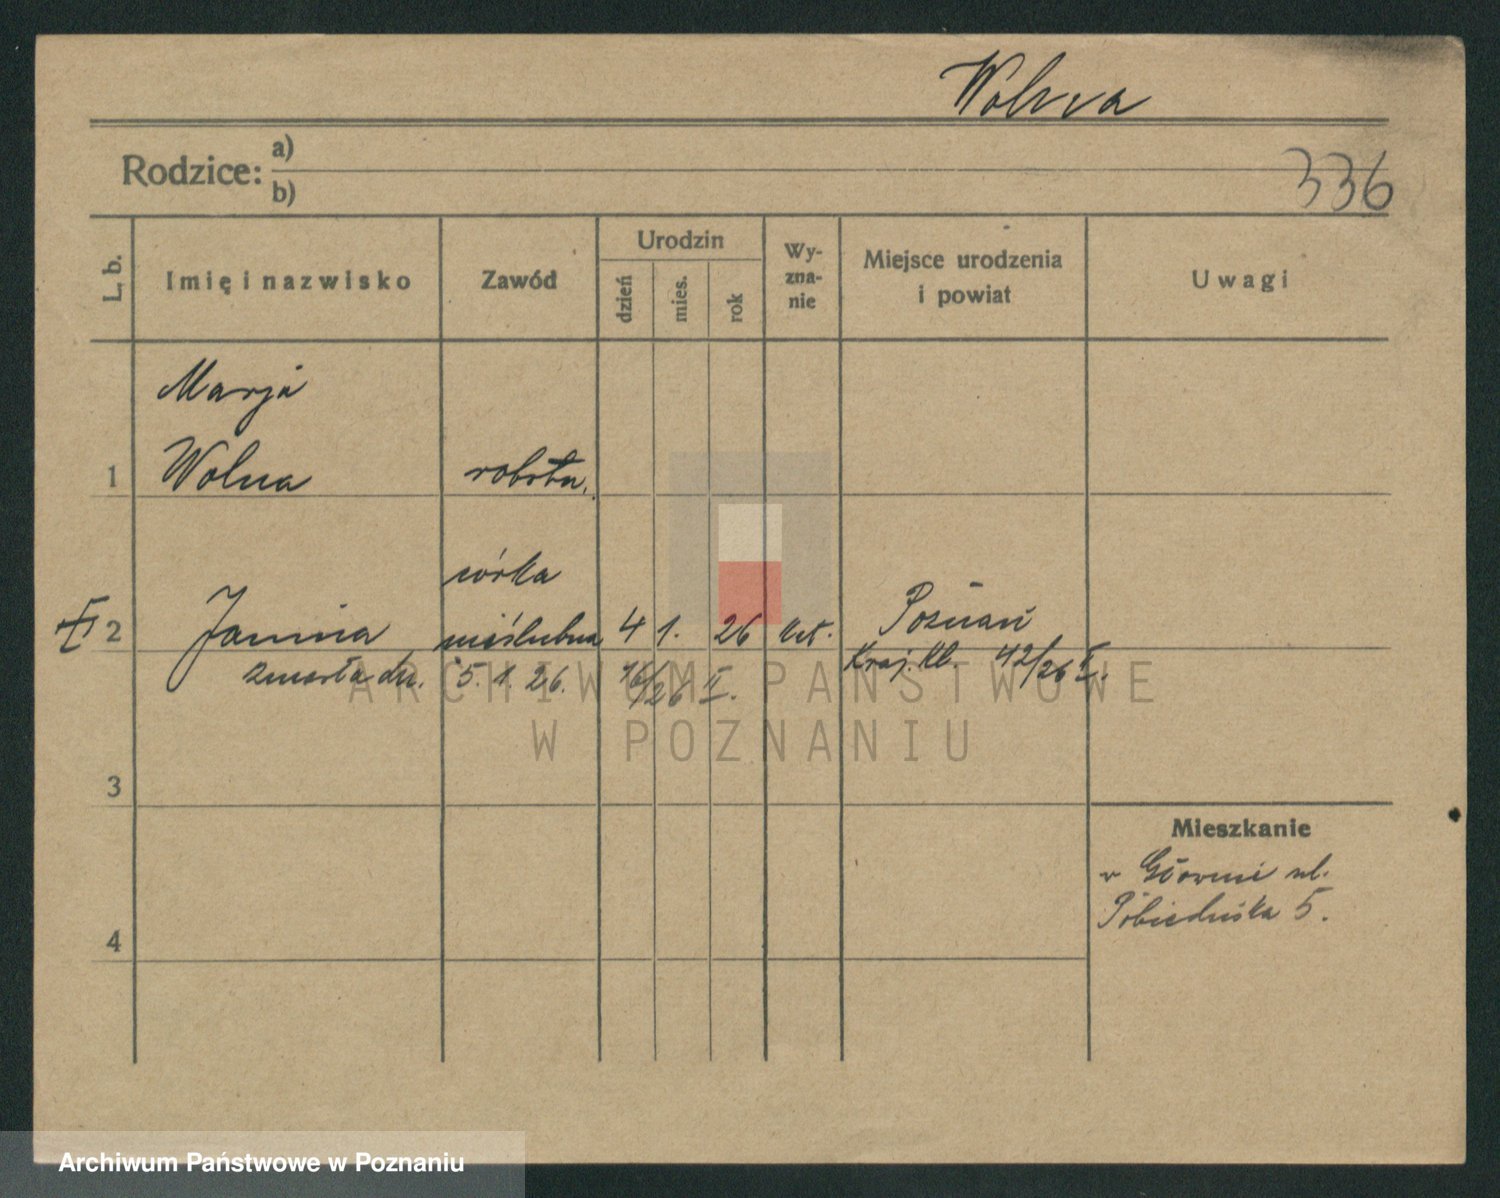 Wolna
Rodzice: a)
b)
336
L. b.
Imię i nazwisko
Zawód
Urodzin
dzień
mies.
rok
Wy-
zna-
nie
Miejsce urodzenia
i powiat
Uwagi
Marja
1 Wolna robotn.
córka
2 Janina nieślubna 4 1. 26 kat. Poznań
zmarła dn. 5. 1. 26. 16/26 II. Kraj. Kl. 42/26 I.
3
Mieszkanie
w Głównie ul.
Pobiedziska 5.
4
ARCHIWUM PAŃSTWOWE
W POZNANIU
Archiwum Państwowe w Poznaniu